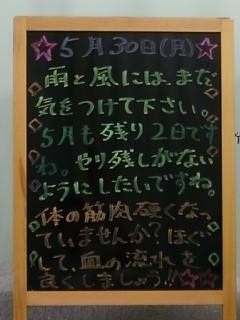 5月30日(月)
雨と風には、まだ
気をつけて下さい。
5月も残り2日です
ね。やり残しがない
ようにしたいですね。
体の筋肉硬くなっ
ていませんか?ほぐ
して、血の流れを
良くしましょう!!